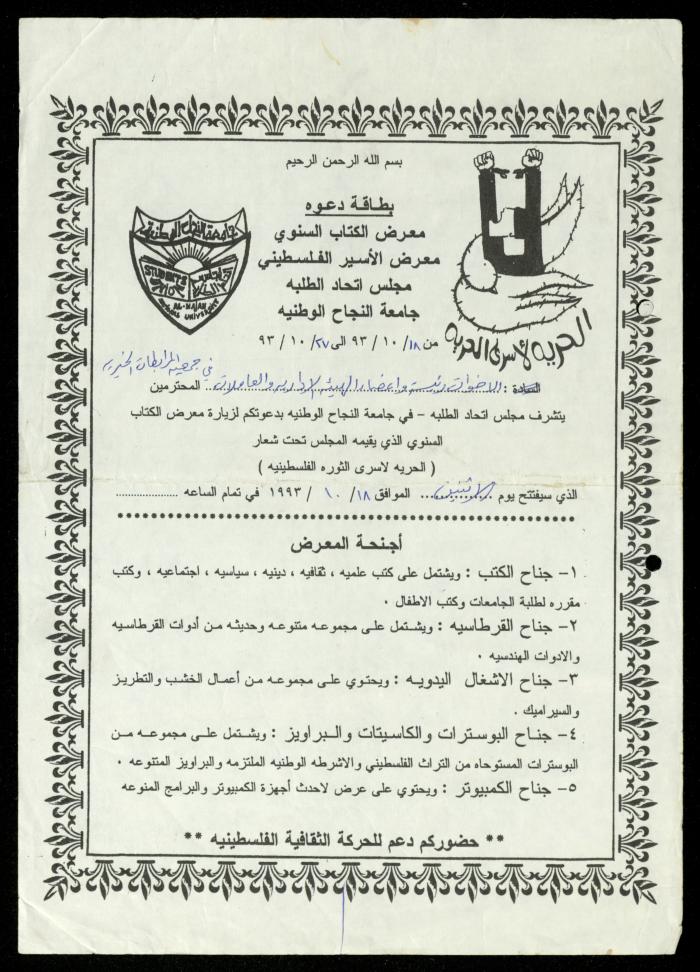 بسم الله الرحمن الرحيم
بطاقة دعوه
معرض الكتاب السنوي
معرض الأسير الفلسطيني
مجلس اتحاد الطلبه
جامعة النجاح الوطنيه
جامعة النجاح الوطنية
STUDENTS
AL-NAJAH
UNIVERSITY
الحريه لأسرى الحريه
من ١٨/ ١٠ / ٩٣ الى ٢٧/ ١٠ / ٩٣
في جمعية المرابطات الخيرية
السادة : الاخوات رئيسة واعضاء الهيئة الادارية والعاملات .. المحترمين
يتشرف مجلس اتحاد الطلبه - في جامعة النجاح الوطنيه بدعوتكم لزيارة معرض الكتاب
السنوي الذي يقيمه المجلس تحت شعار
( الحريه لاسرى الثوره الفلسطينيه )
الذي سيفتتح يوم .. الاثنين .... الموافق ١٨/ ١٠ / ١٩٩٣ في تمام الساعه ....................
أجنحة المعرض
١- جناح الكتب : ويشتمل على كتب علميه ، ثقافيه ، دينيه ، سياسيه ، اجتماعيه ، وكتب
مقرره لطلبة الجامعات وكتب الاطفال ٠
٢- جناح القرطاسيه : ويشتمل على مجموعه متنوعه وحديثه من أدوات القرطاسيه
والادوات الهندسيه ٠
٣- جناح الاشغال اليدويه : ويحتوي على مجموعه من أعمال الخشب والتطريز
والسيراميك .
٤- جناح البوسترات والكاسيتات والبراويز : ويشتمل على مجموعه من
البوسترات المستوحاه من التراث الفلسطيني والاشرطه الوطنيه الملتزمه والبراويز المتنوعه ٠
٥- جناح الكمبيوتر : ويحتوي على عرض لاحدث أجهزة الكمبيوتر والبرامج المنوعه
** حضوركم دعم للحركة الثقافية الفلسطينيه **